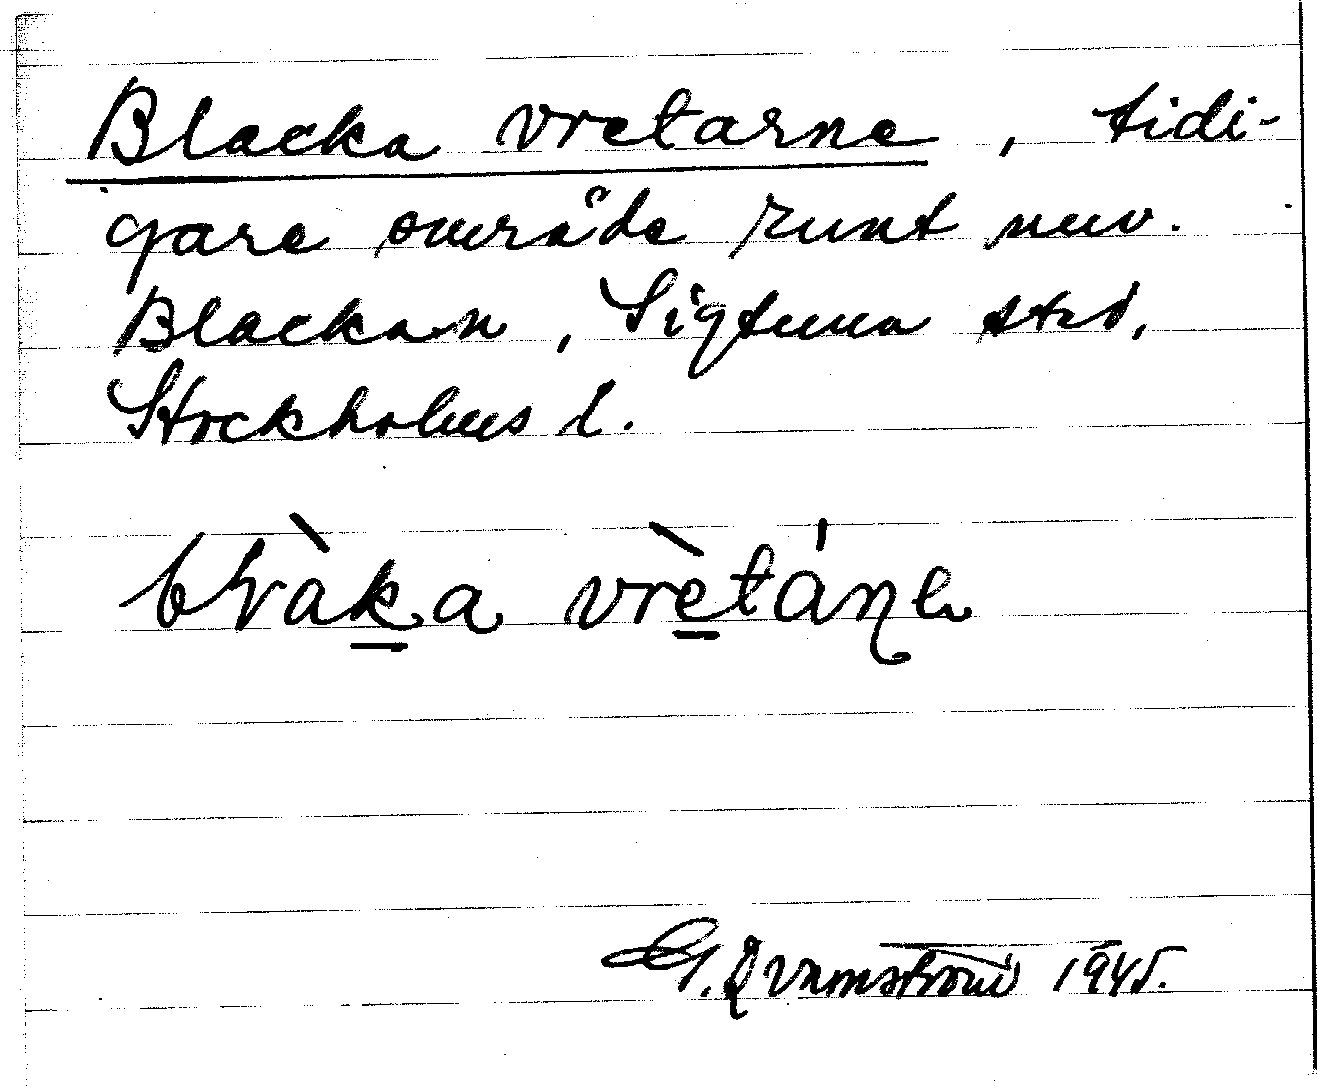 Blacka vretarne, tidi-
gare område runt nuv.
Blackan, Sigtuna stad,
Stockholms l.
blràka vrètáṇe
G. Qvarnström 1945.